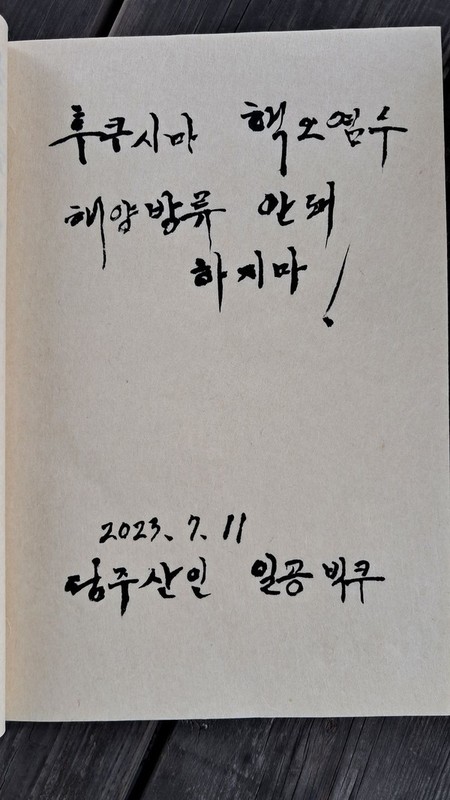 후쿠시마 핵오염수
해양방류 안돼
하지마!
2023. 7. 11
일공 빅큐